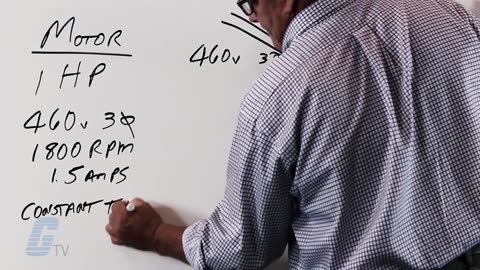 MOTOR
1 HP
460V 3Ø
1800 RPM
1.5 AMPS
CONSTANT T
460V 3
G TV